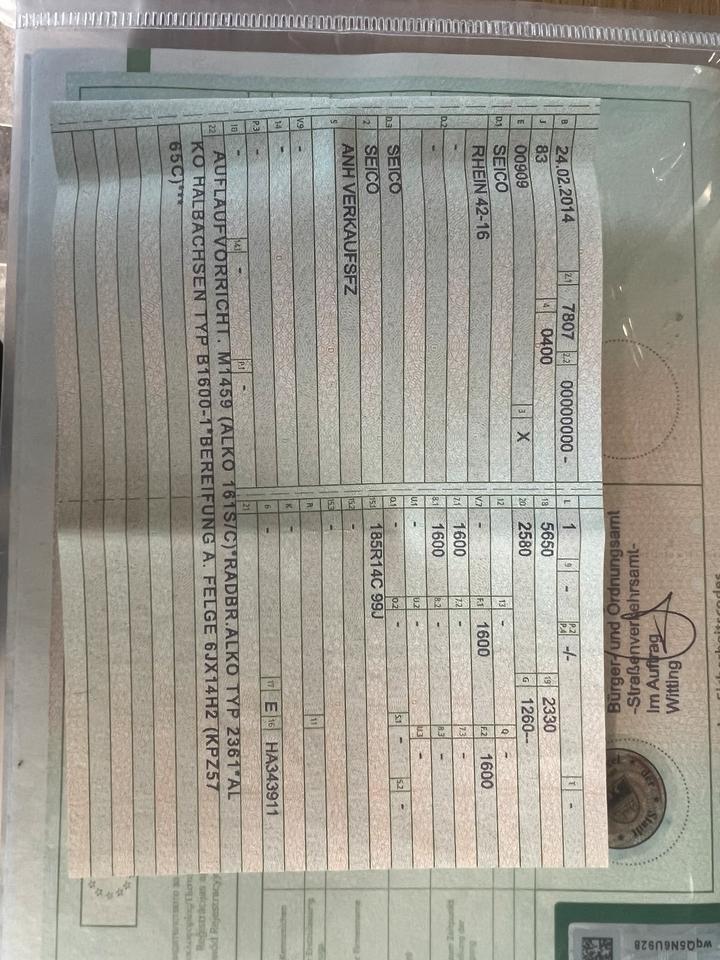 B 24.02.2014 2.1 7807 2.2 00000000 -
J 83 4 0400
E 00909 3 X
D.1 SEICO
RHEIN 42-16
-
D.2 -
-
D.3 SEICO
2 SEICO
5 ANH VERKAUFSFZ
V.9 -
14 -
P.3 -
10 - 14.1 - P.1 -
22 AUFLAUFVORRICHT. M1459 (ALKO 161S/C)*RADBR.ALKO TYP 2361*AL
KO HALBACHSEN TYP B1600-1*BEREIFUNG A. FELGE 6JX14H2 (KPZ57
65C)***
L 1 9 - P.2 P.4 -/- T -
18 5650 19 2330
20 2580 G 1260--
12 - 13 - Q -
V.7 - F.1 1600 F.2 1600
7.1 1600 7.2 - 7.3 -
8.1 1600 8.2 - 8.3 -
U.1 - U.2 - U.3 -
O.1 - O.2 - S.1 - S.2 -
15.1 185R14C 99J
15.2 -
15.3 -
R - 11
K -
6 - 17 E 16 HA343911
21
Bürger- und Ordnungsamt
-Straßenverkehrsamt-
Im Auftrag
Witting
der Stadt
wqQ5N6U928